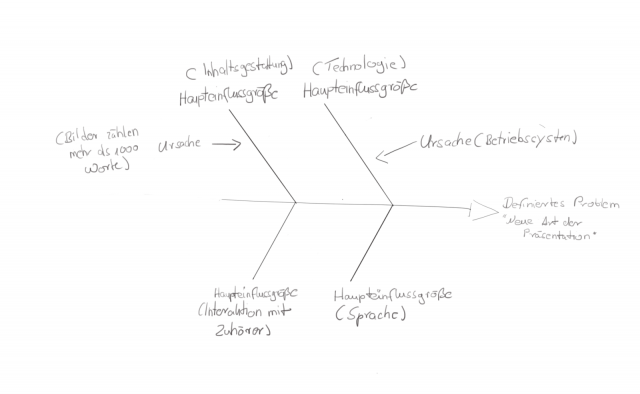 (Inhaltsgestaltung)
Haupteinflussgröße
(Technologie)
Haupteinflussgröße
(Bilder zählen
mehr als 1000
Worte)
Ursache
Ursache (Betriebssystem)
Definiertes Problem
"Neue Art der
Präsentation"
Haupteinflussgröße
(Interaktion mit
Zuhörer)
Haupteinflussgröße
(Sprache)